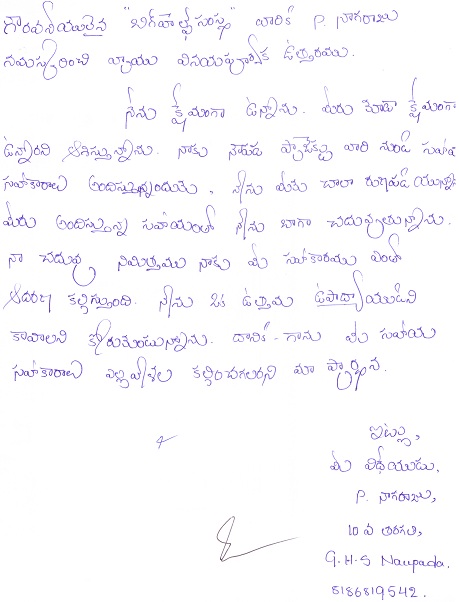 గౌరవనీయులైన "బిగ్‌హెల్ప్ సంస్థ" వారికి P. నాగరాజు
నమస్కరించి వ్రాయు వినయపూర్వక ఉత్తరము.
నేను క్షేమంగా ఉన్నాను. మీరు కూడా క్షేమంగా
ఉన్నారని ఆశిస్తున్నాను. నాకు నౌపడ ప్రాజెక్టు వారి నుండి సహాయ
సహకారాలు అందిస్తున్నందుకు, నేను మీకు చాలా రుణపడి యున్నాను
మీరు అందిస్తున్న సహాయంతో నేను బాగా చదువుతున్నాను.
నా చదువు నిమిత్తము నాకు మీ సహకారము ఎంతో
ఆదరణ కల్గిస్తుంది. నేను ఒక ఉత్తమ ఉపాధ్యాయుడిని
కావాలని కోరుకుంటున్నాను. దానికి గాను మీ సహాయ
సహకారాలు ఎల్లవేళల కల్గించగలరని మా ప్రార్థన.
ఇట్లు,
మీ విధేయుడు,
P. నాగరాజు,
10 వ తరగతి,
G.H.S Naupada.
8186819542.